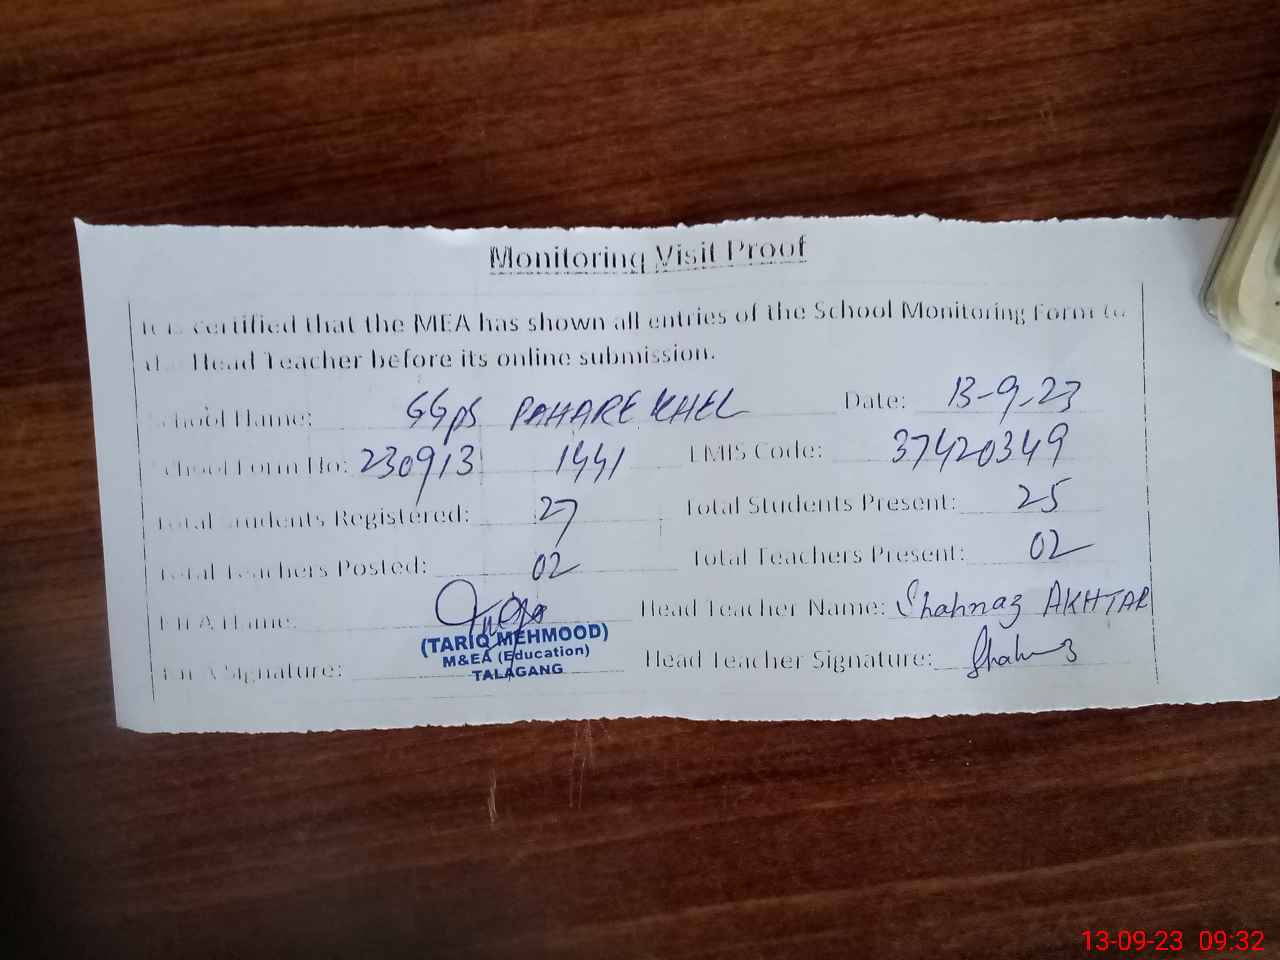 Monitoring Visit Proof
It is certified that the MEA has shown all entries of the School Monitoring Form to
the Head Teacher before its online submission.
School Name: GGPS PAHARE KHEL Date: 13-9-23
School Form No: 230913 1441 EMIS Code: 37420349
Total Students Registered: 27 Total Students Present: 25
Total Teachers Posted: 02 Total Teachers Present: 02
MEA Name: Head Teacher Name: Shahnaz AKHTAR
(TARIQ MEHMOOD)
M&EA (Education)
TALAGANG
MEA Signature: Head Teacher Signature: Shahnaz
13-09-23 09:32